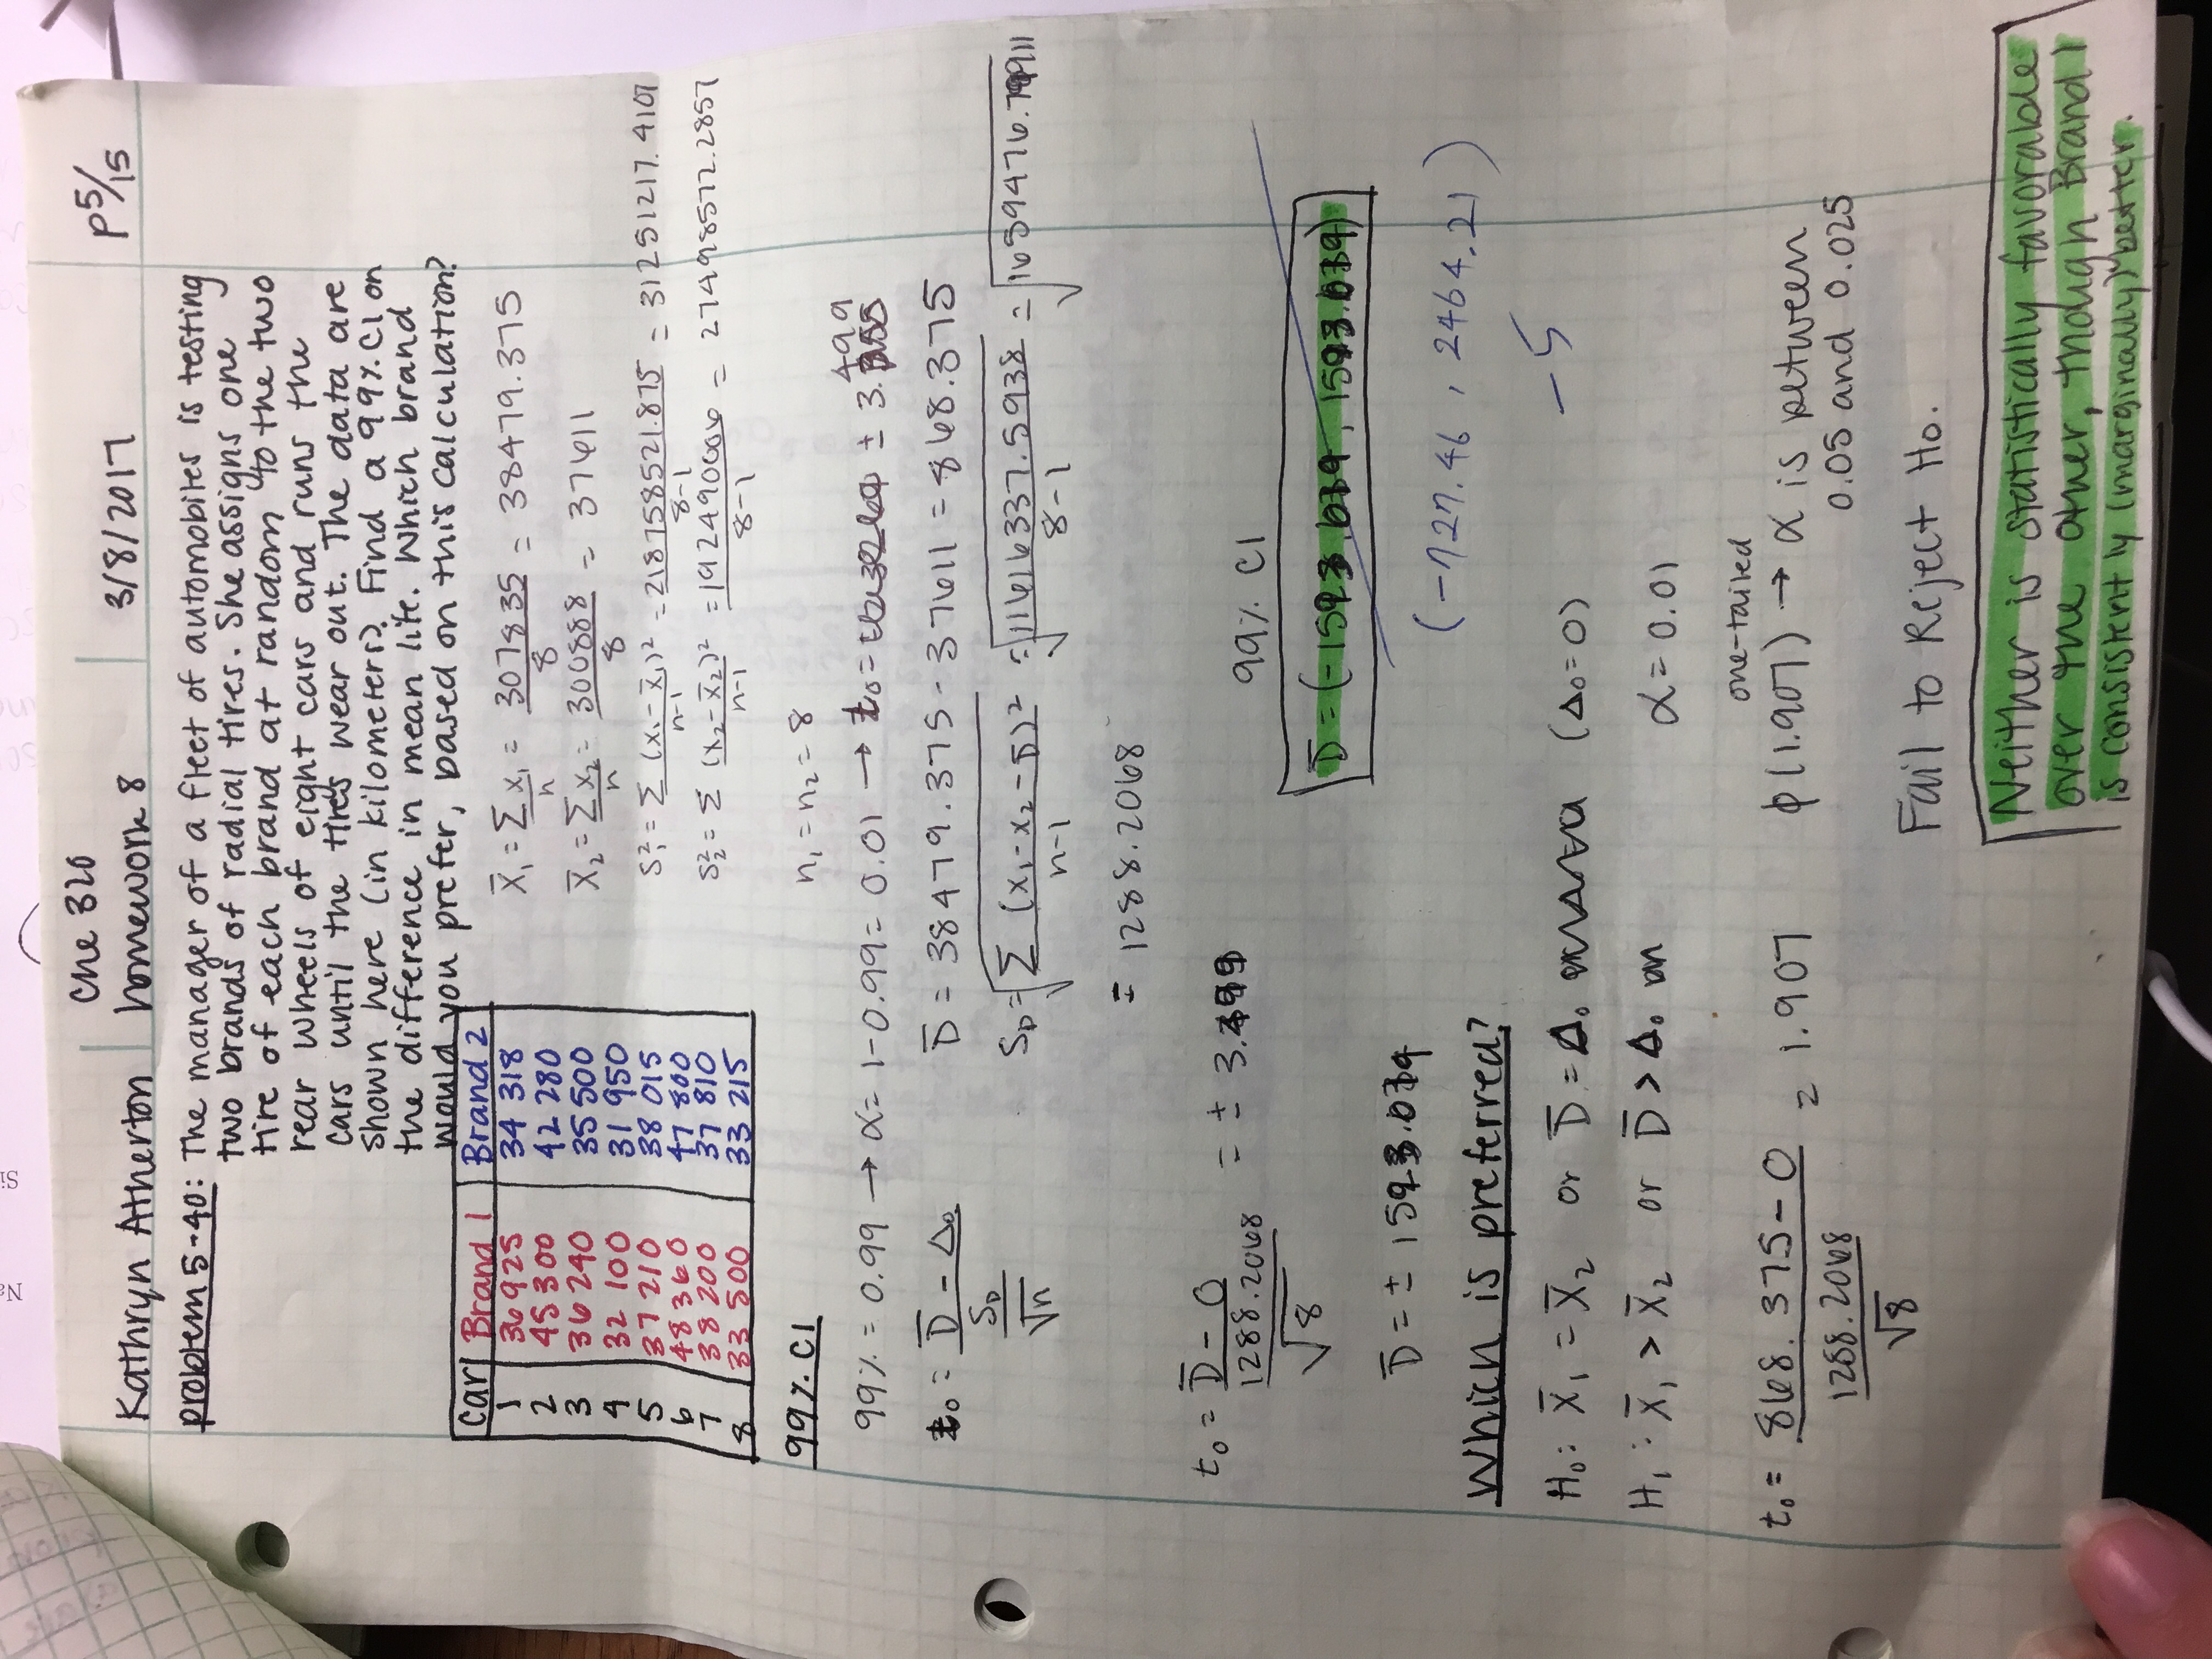 Che 320
Kathryn Atherton homework 8 3/8/2017 P5/15
problem 5-40: The manager of a fleet of automobiles is testing
two brands of radial tires. She assigns one
tire of each brand at random to the two
rear wheels of eight cars and runs the
cars until the tires wear out. The data are
shown here (in kilometers). Find a 99% CI on
the difference in mean life. Which brand
would you prefer, based on this calculation?
car Brand 1 Brand 2
1 36 925 34 318
2 45 300 42 280
3 36 240 35 500
4 32 100 31 950
5 37 210 38 015
6 48 360 47 800
7 38 200 37 810
8 33 500 33 215
X̄₁ = Σx₁/n = 307835/8 = 38479.375
X̄₂ = Σx₂/n = 300888/8 = 37611
S₁² = Σ (x₁-x̄₁)²/n-1 = 218758521.875/8-1 = 31251217.4107
S₂² = Σ (x₂-x̄₂)²/n-1 = 192490006/8-1 = 27498572.2857
99% CI
n₁ = n₂ = 8
99% = 0.99 → α = 1-0.99 = 0.01 → t₀ = ± 3.499
t₀ = D̄ - Δ₀/S_D/√n
D̄ = 38479.375 - 37611 = 868.375
S_D = √Σ (x₁-x₂-D̄)²/n-1 = √11616337.5938/8-1 = √1659476.79911
= 1288.2068
t₀ = D̄ - 0/1288.2068/√8 = ± 3.499
99% CI
D̄ = ±
(-727.46 , 2464.21)
-5
Which is preferred?
H₀: X̄₁ = X̄₂ or D̄ = Δ₀ (Δ₀=0)
H₁: X̄₁ > X̄₂ or D̄ > Δ₀
α = 0.01
t₀ = 868.375 - 0/1288.2068/√8 = 1.907
one-tailed
φ(1.907) → α is between
0.05 and 0.025
Fail to Reject Ho.
Neither is statistically favorable
over the other, though Brand 1
is consistently (marginally) better.